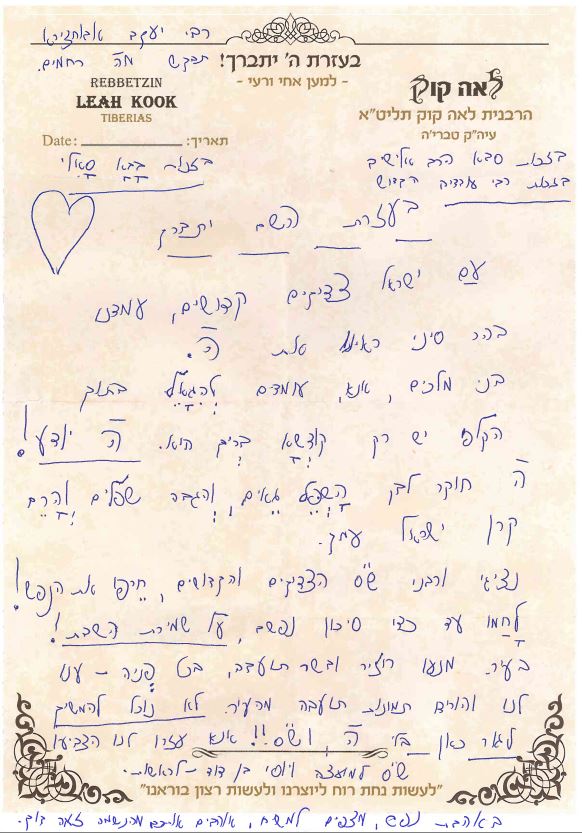 רבי יעקב אבוחצירא
תבקש מה' רחמים.
בעזרת ה' יתברך!
- למען אחי ורעי -
REBBETZIN
LEAH KOOK
TIBERIAS
Date: תאריך:
לאה קוק
הרבנית לאה קוק תליט"א
עיה"ק טבריה
בזכות בבא סאלי
בזכות סבא הרב אלישיב
בזכות רבי עובדיה הקדוש
בעזרת השם יתברך
עם ישראל צדיקים קדושים, עמדנו
בהר סיני ראינו את ה'.
בני מלכים, אנא, עומדים להגאל בתוך
הקלפי יש רק קודשא בריך הוא. ה' יודע!
ה' חוקר לבן השפל גאים, והגבה שפלים והרם
קרן ישראל עמך.
נציגי ורבני ש"ס הצדיקים והקדושים, חרפו את הנפש!
לחמו עד כדי סיכון נפשם, על שמירת השבת!
בעיר. מנעו חזיר ובשר תועבה, בכל פניה - ענו
לנו והורידו תמונות תועבה מהעיר. לא נוכל להמשיך
לגור כאן בלי ה', וש"ס!! אנא עזרו לנו הצביעו
ש"ס למועצה ויוסי בן דוד - לראשות.
"לעשות נחת רוח ליוצרנו ולעשות רצון בוראנו"
באהבת נפש, מצפים למשיח, אוהבים אתכם מהנשמה לאה קוק.